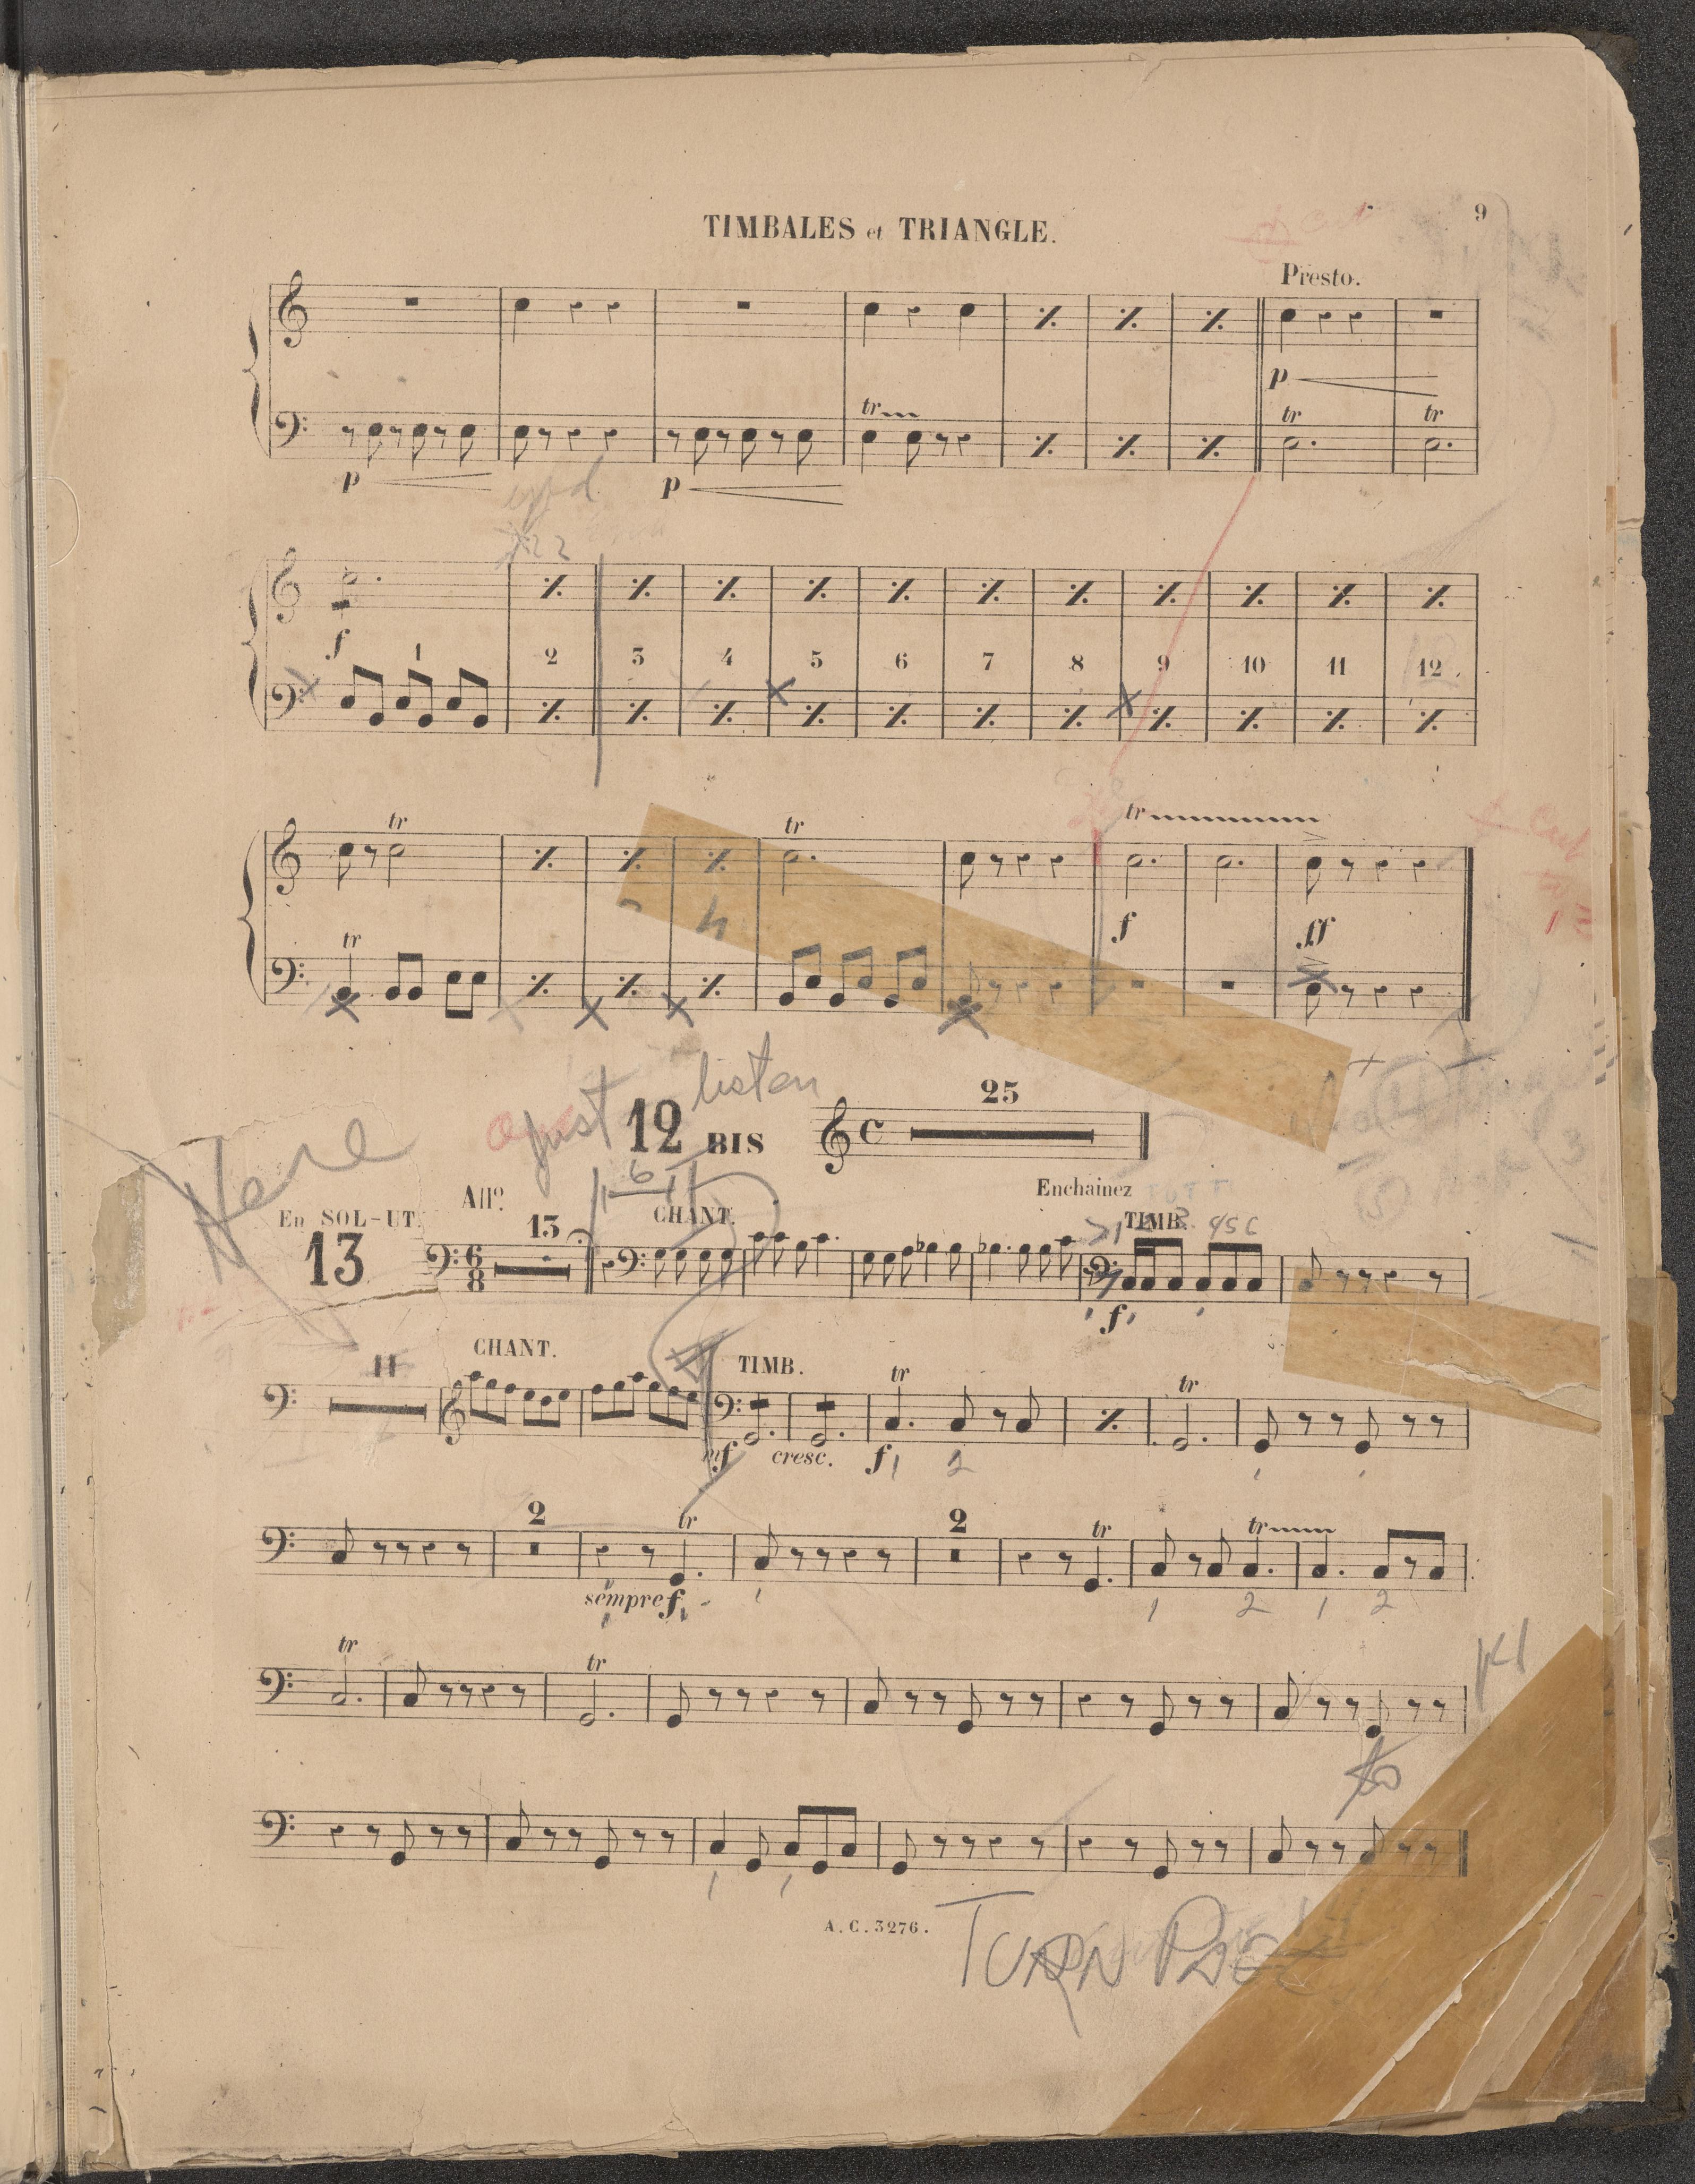 TIMBALES et TRIANGLE.
9
Presto.
p
tr
tr
tr
p
p
f
1 2 3 4 5 6 7 8 9 10 11 12
tr
tr
tr
Cut
f
ff
tr
4
just
listen
12 BIS
25
Here
6
Allº
Enchainez
En SOL-UT.
13
13
CHANT.
TIMB.
f
11
CHANT.
TIMB.
tr
tr
mf cresc. f 1 2
2
tr
2
tr
tr
sempre f
1 2 1 2
tr
tr
to
A.C.3276.
TURN PAGE